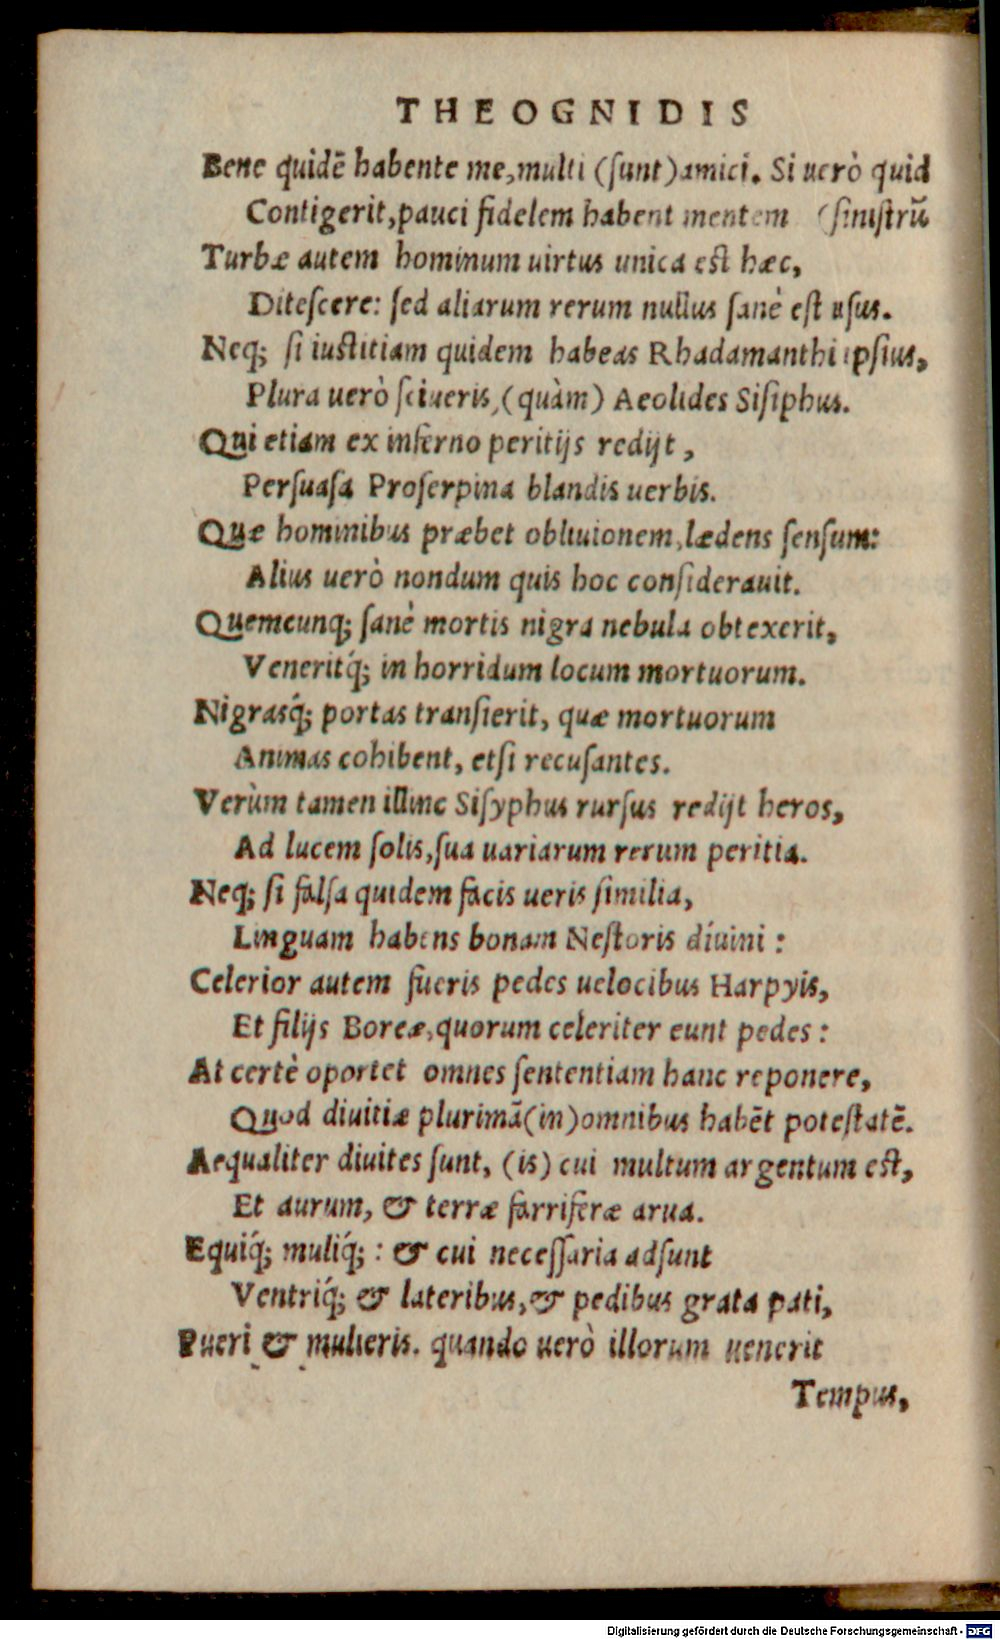 THEOGNIDIS
Bene quidē habente me, multi (ſunt) amici. Si uerò quid
Contigerit, pauci fidelem habent mentem (ſiniſtrū
Turbæ autem hominum uirtus unica est hæc,
Diteſcere: ſed aliarum rerum nullus ſanè eſt uſus.
Neq; ſi iuſtitiam quidem habeas Rhadamanthi ipſius,
Plura uerò ſciueris, (quàm) Aeolides Siſiphus.
Qui etiam ex inferno peritijs redijt,
Perſuaſa Proſerpina blandis uerbis.
Quæ hominibus præbet obliuionem, lædens ſenſum:
Alius uerò nondum quis hoc conſiderauit.
Quemcunq; ſanè mortis nigra nebula obtexerit,
Veneritq́; in horridum locum mortuorum.
Nigrasq́; portas tranſierit, quæ mortuorum
Animas cohibent, etſi recuſantes.
Verùm tamen illinc Siſyphus rurſus redijt heros,
Ad lucem ſolis, ſua uariarum rerum peritia.
Neq; ſi falſa quidem facis ueris ſimilia,
Linguam habens bonam Neſtoris diuini:
Celerior autem fueris pedes uelocibus Harpyis,
Et filijs Boreæ, quorum celeriter eunt pedes:
At certè oportet omnes ſententiam hanc reponere,
Quod diuitiæ plurimā (in) omnibus habēt poteſtatē.
Aequaliter diuites ſunt, (is) cui multum argentum est,
Et aurum, & terræ farriferæ arua.
Equiq́; muliq́; : & cui neceſſaria adſunt
Ventriq́; & lateribus, & pedibus grata pati,
Pueri & mulieris. quando uerò illorum uenerit
Tempus,
Digitalisierung gefördert durch die Deutsche Forschungsgemeinschaft - DFG